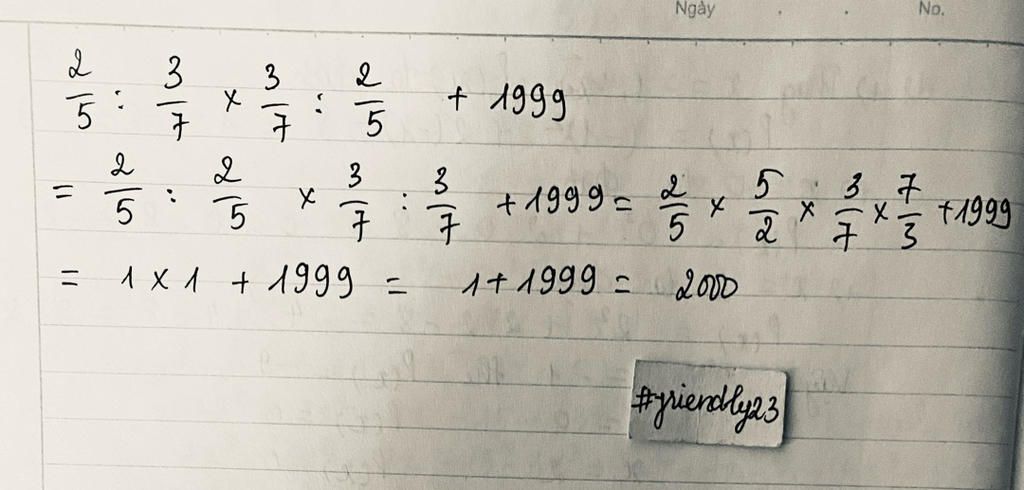 Ngày . . No.
2/5 : 3/7 × 3/7 : 2/5 + 1999
= 2/5 : 2/5 × 3/7 : 3/7 + 1999 = 2/5 × 5/2 × 3/7 × 7/3 + 1999
= 1 × 1 + 1999 = 1 + 1999 = 2000
#friendly23